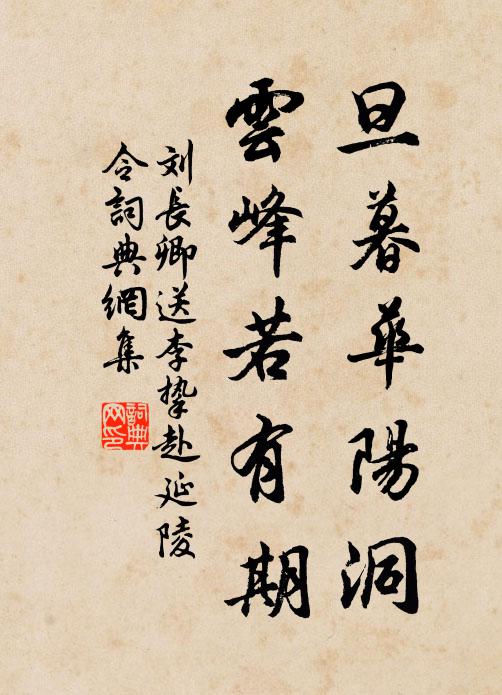 旦暮華陽洞
雲峰若有期
刘長卿送李挚赴延陵
令詞典網集
詞典网印